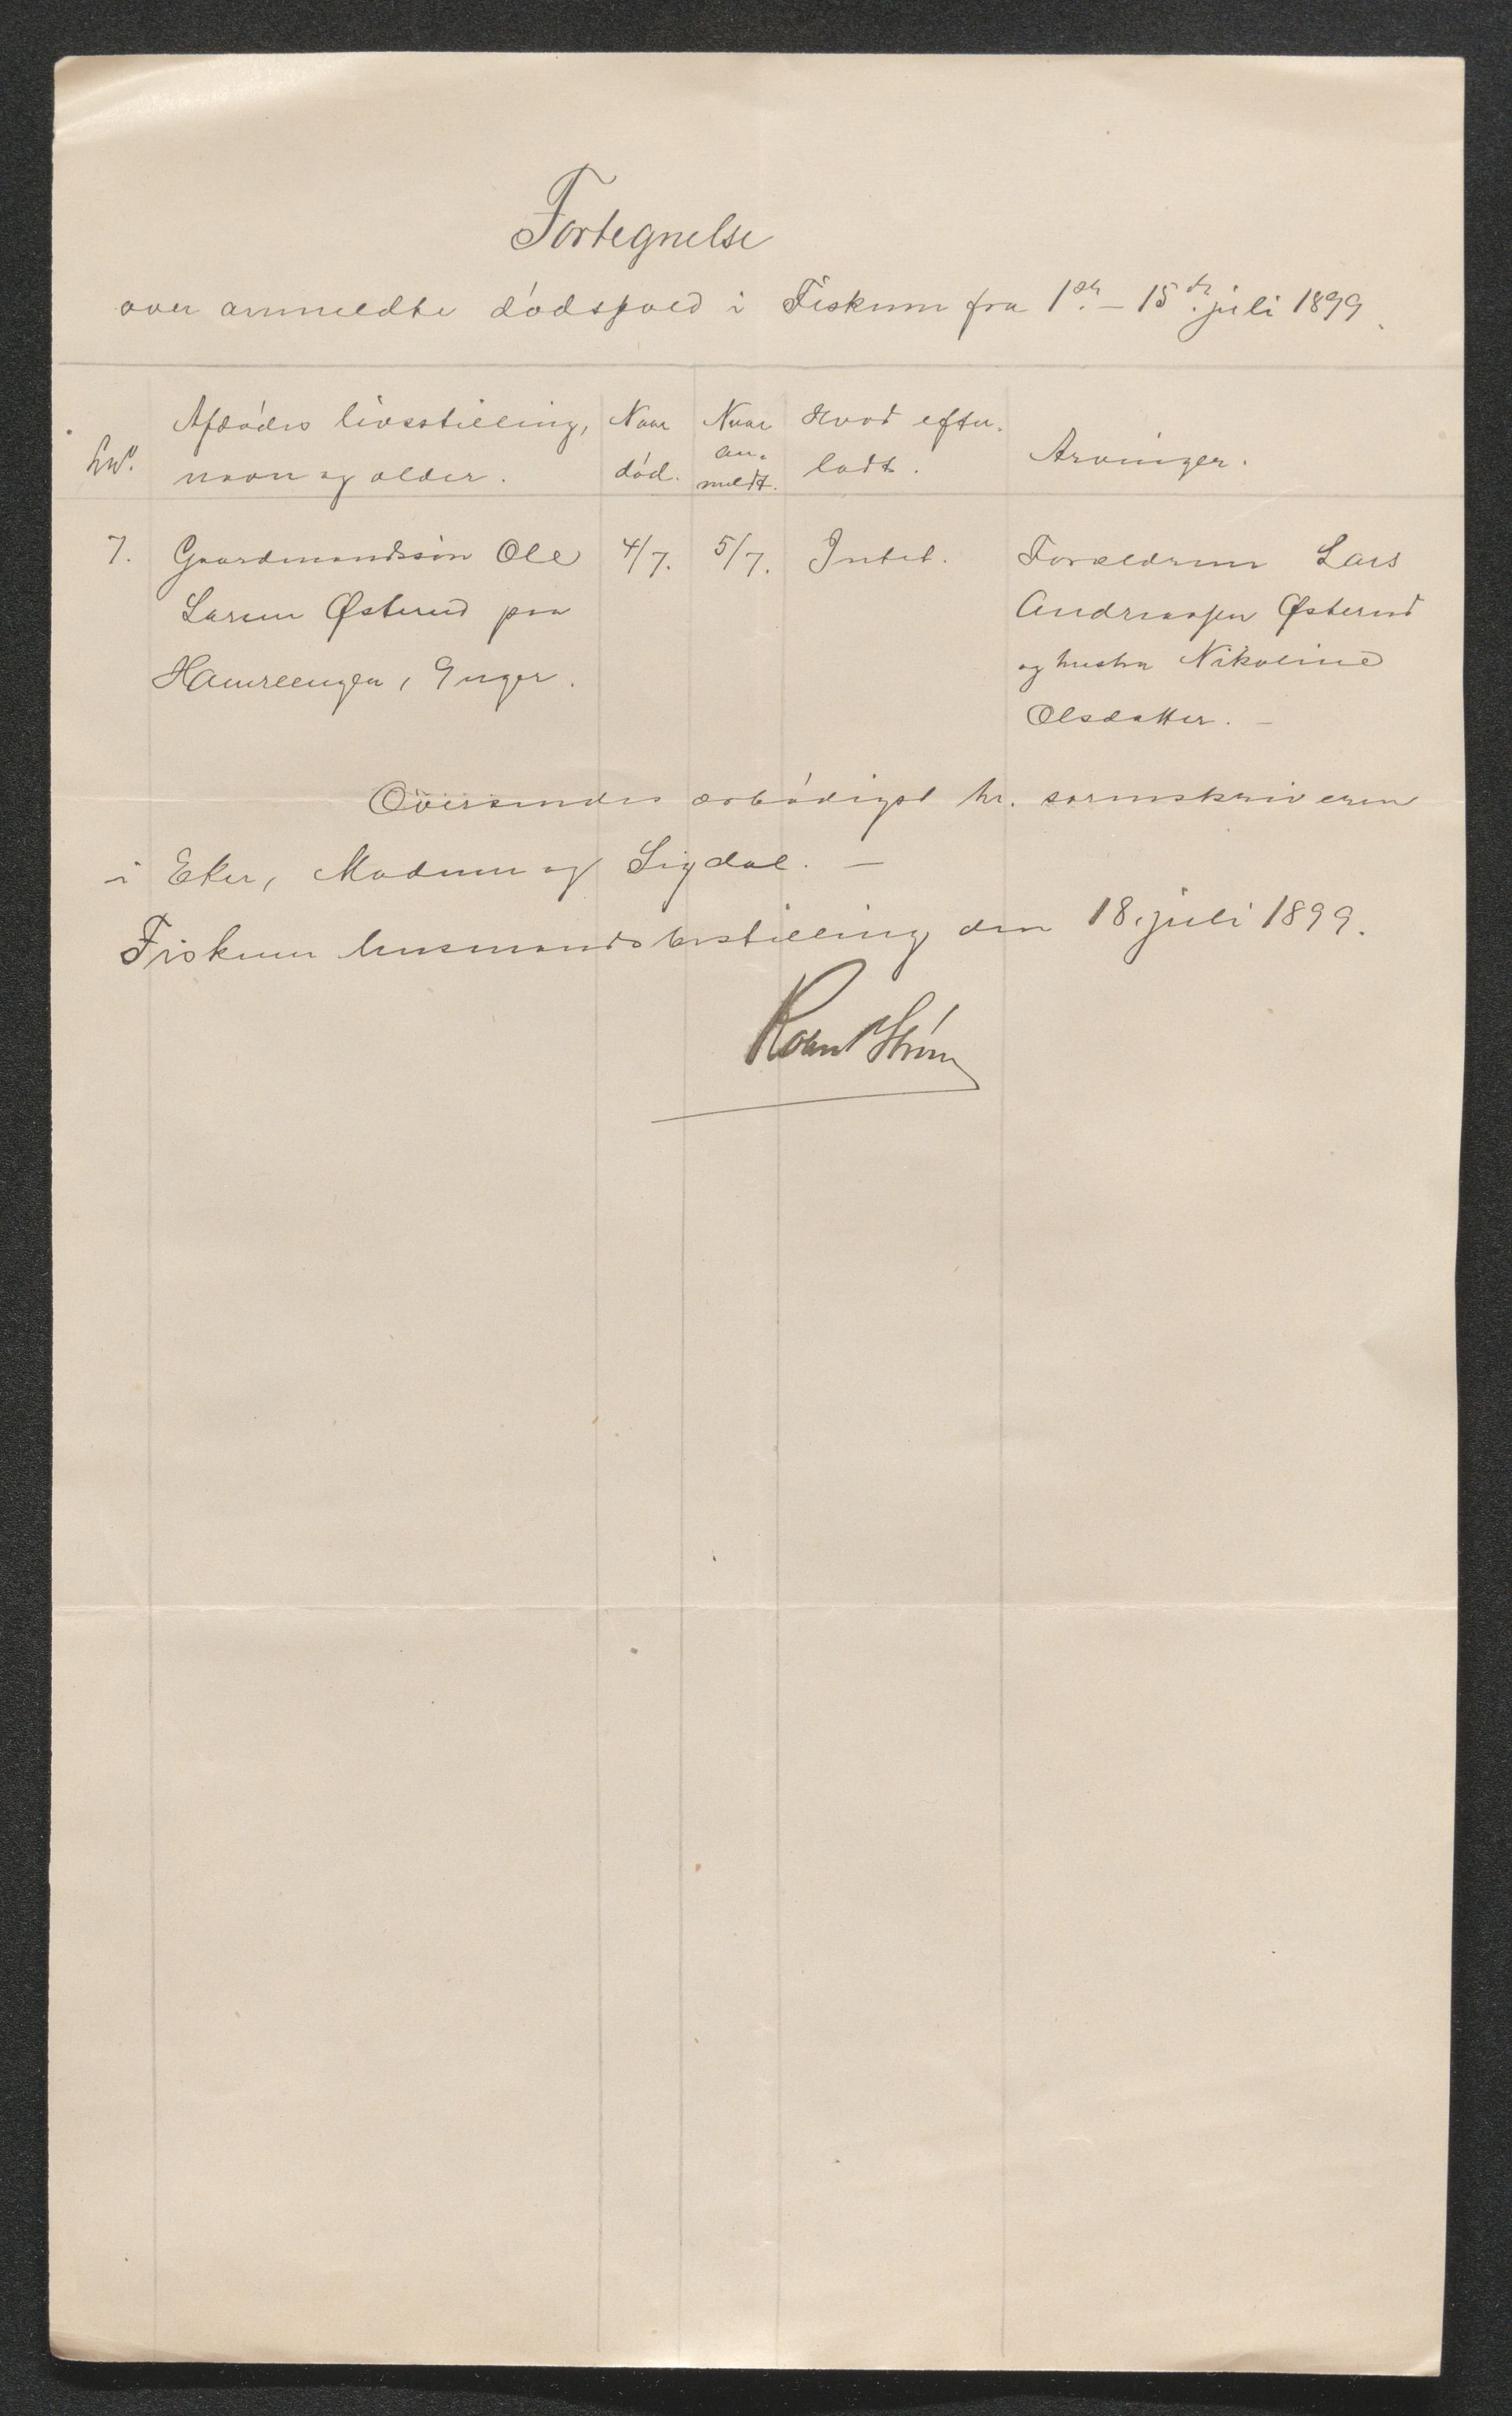 Fortegnelse
over anmeldte dødsfald i Fiskum fra 1ste. – 15de. juli 1899.
Afdødes livsstilling,
navn og alder.
Naar
død.
Naar
an-
meldt.
Hvad efter-
ladt.
Arvinger.
7. Gaardmandssøn Ole 4/7. 5/7. Intet. Forældrene Lars
Larsen Østerud paa Andreassen Østerud
Hamreengen, 9 uger. og hustru Nikoline
Olsdatter. –
Oversendes ærbødigst hr. sorenskriveren
i Eker, Modum og Sigdal. –
Fiskum lensmandsbestilling den 18. juli 1899.
Strøm